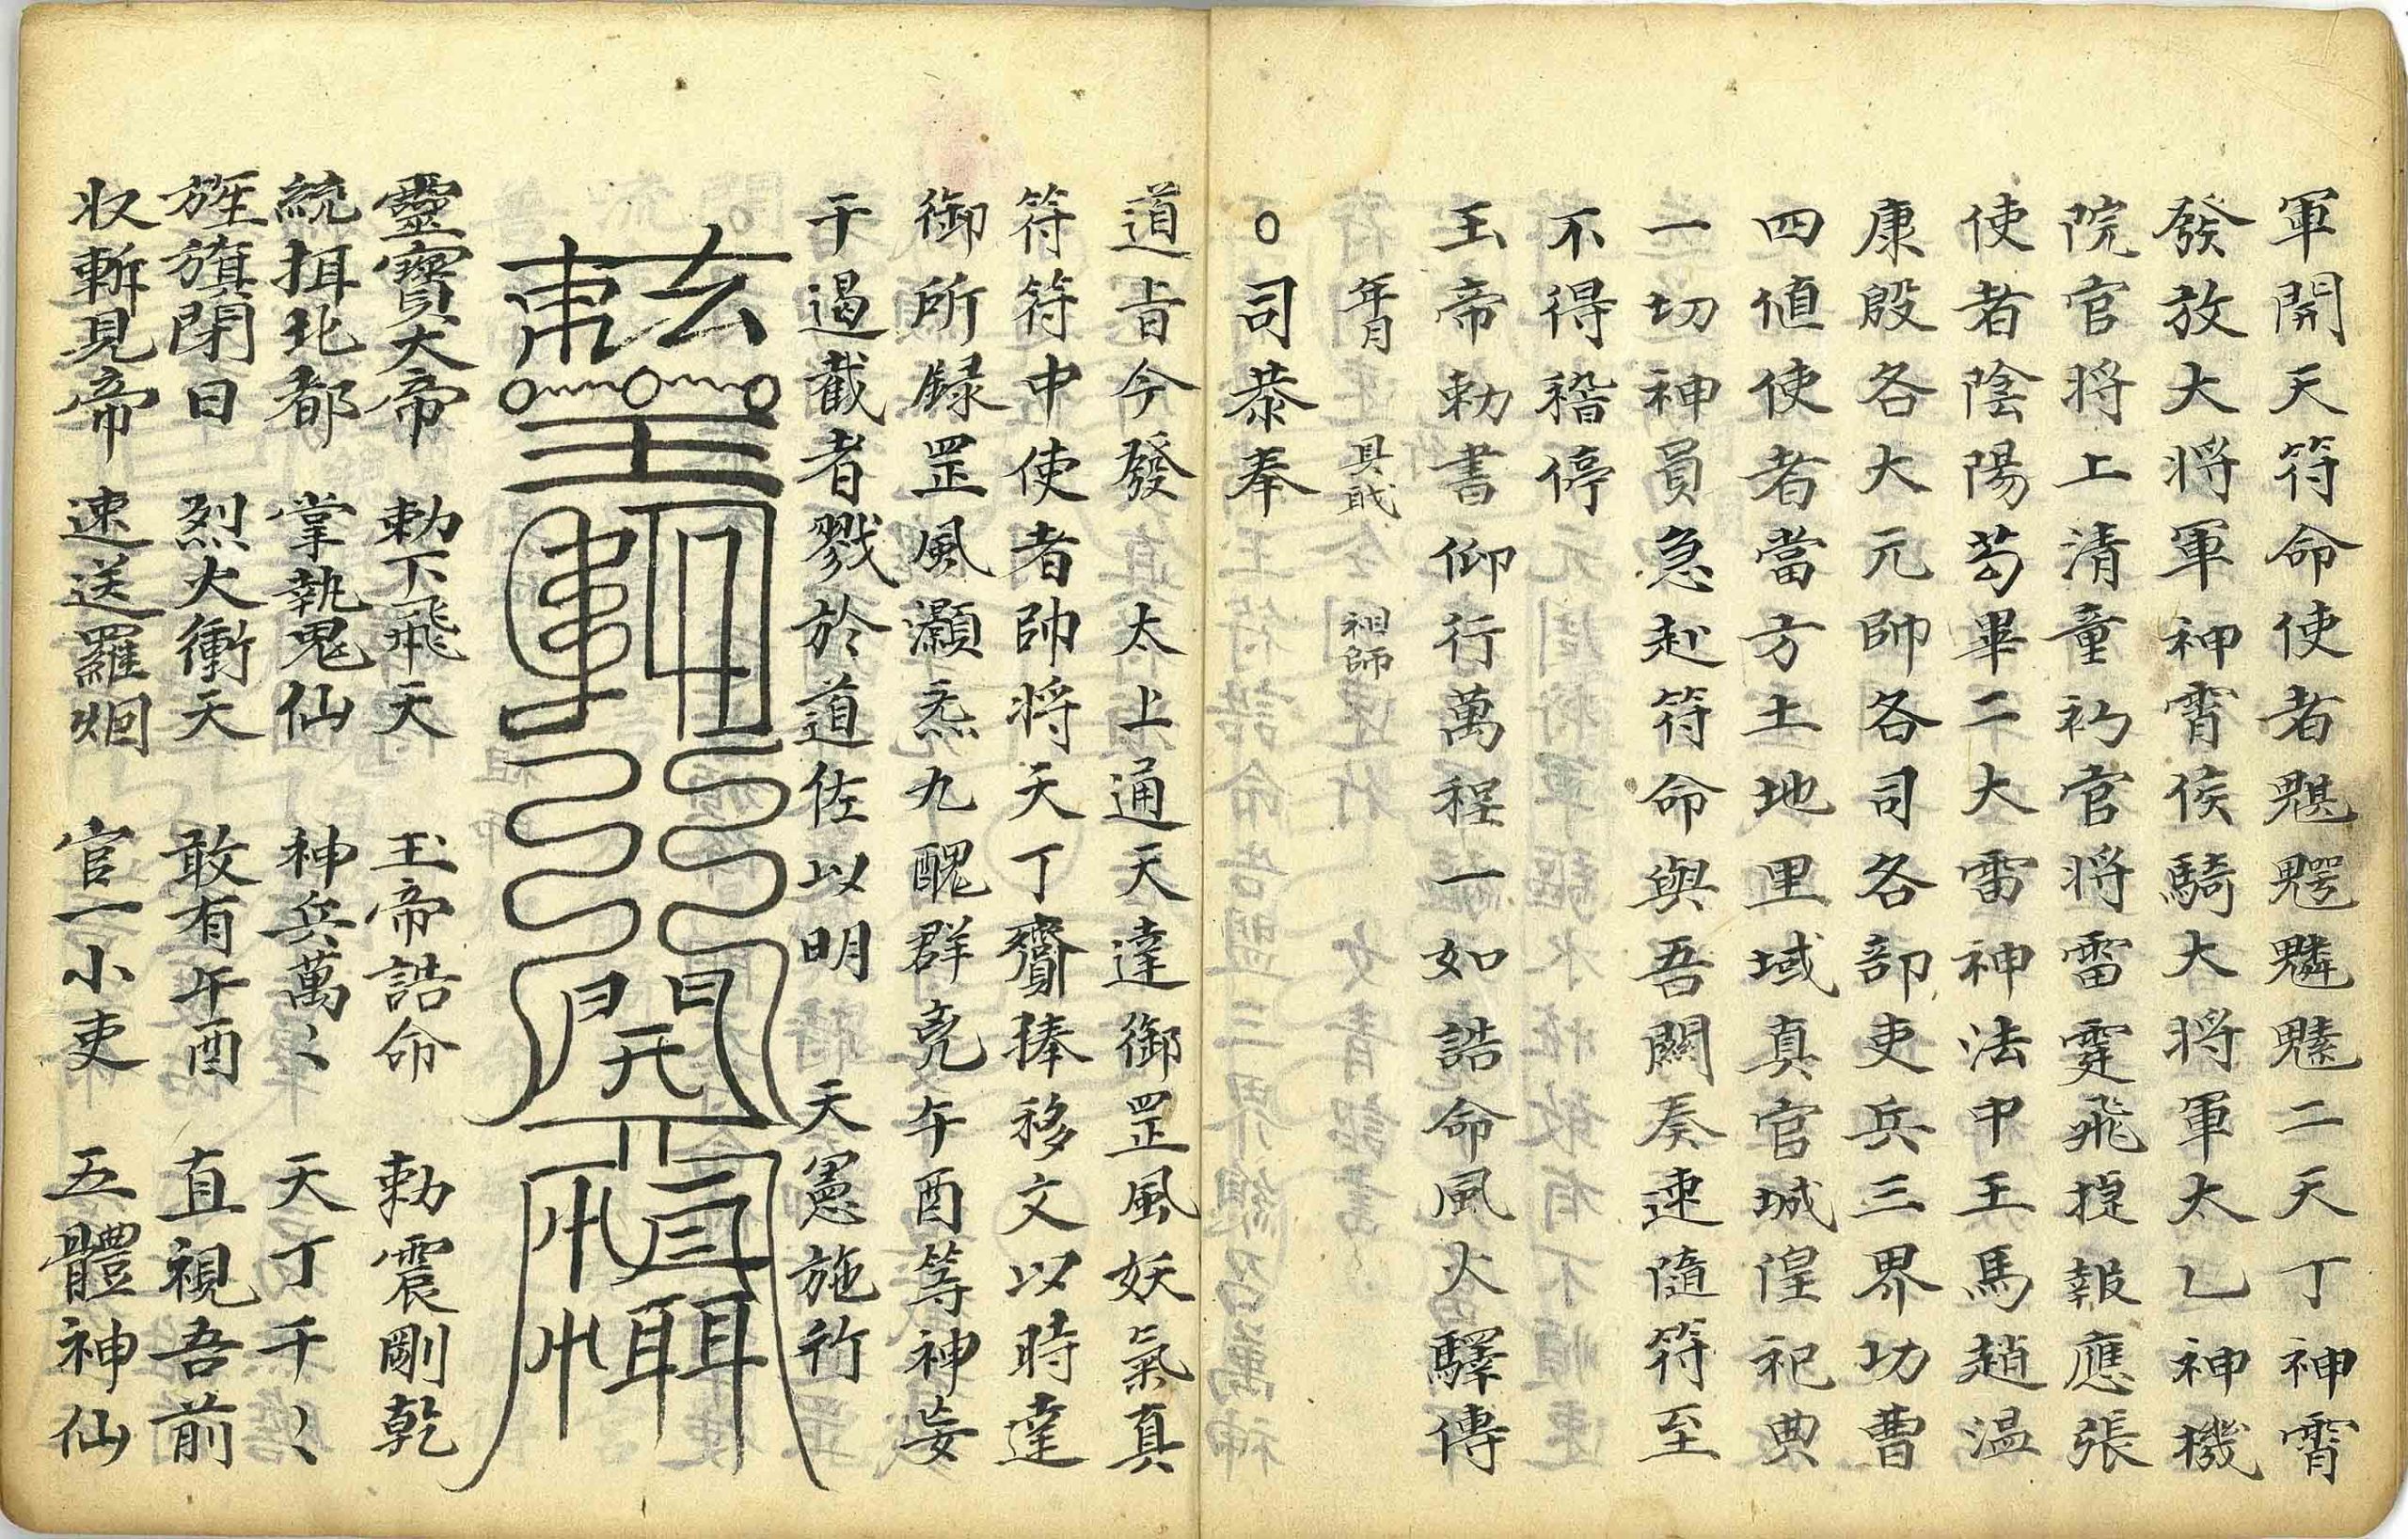 軍開天符命使者魌𩳹𩴠魒二天丁神霄
發放大將軍神霄侯騎大將軍太乙神機
院官将上清童初官将雷霆飛捷報應張
使者陰陽苟畢二大雷神法中王馬趙温
康殷各大元帥各司各部吏兵三界功曹
四值使者當方土地里域真官城隍祀典
一切神員急赴符命與吾闗奏速隨符至
不得稽停
玉帝勅書仰行萬程一如誥命風火驛傳
年月 具戢 祖師
○司恭奉
道旨今發太上通天達御罡風妖氣真
符符中使者帥将天丁齎捧移文以時達
御所録罡風灝炁九醜群兇午酉等神妄
干遏截者戮於道佐以明天憲施行
靈寳大帝 勅下飛天 玉帝誥命 勅震剛乾
統揖北都 掌執鬼仙 神兵萬〻 天丁千〻
旌旗閉日 烈火衝天 敢有午酉 直視吾前
收斬見帝 速送羅烟 官一小吏 五體神仙